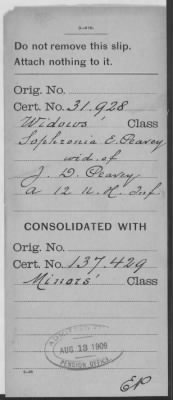 3—575.
Do not remove this slip.
Attach nothing to it.
Orig. No.
Cert. No. 31.928
Widows' Class
Sophronia E. Peavey
wid. of
J. D. Peavey
A 12 N. H. Inf.
CONSOLIDATED WITH
Orig. No.
Cert. No. 137.429
Minors' Class
AUG 13 1909
PENSION OFFICE